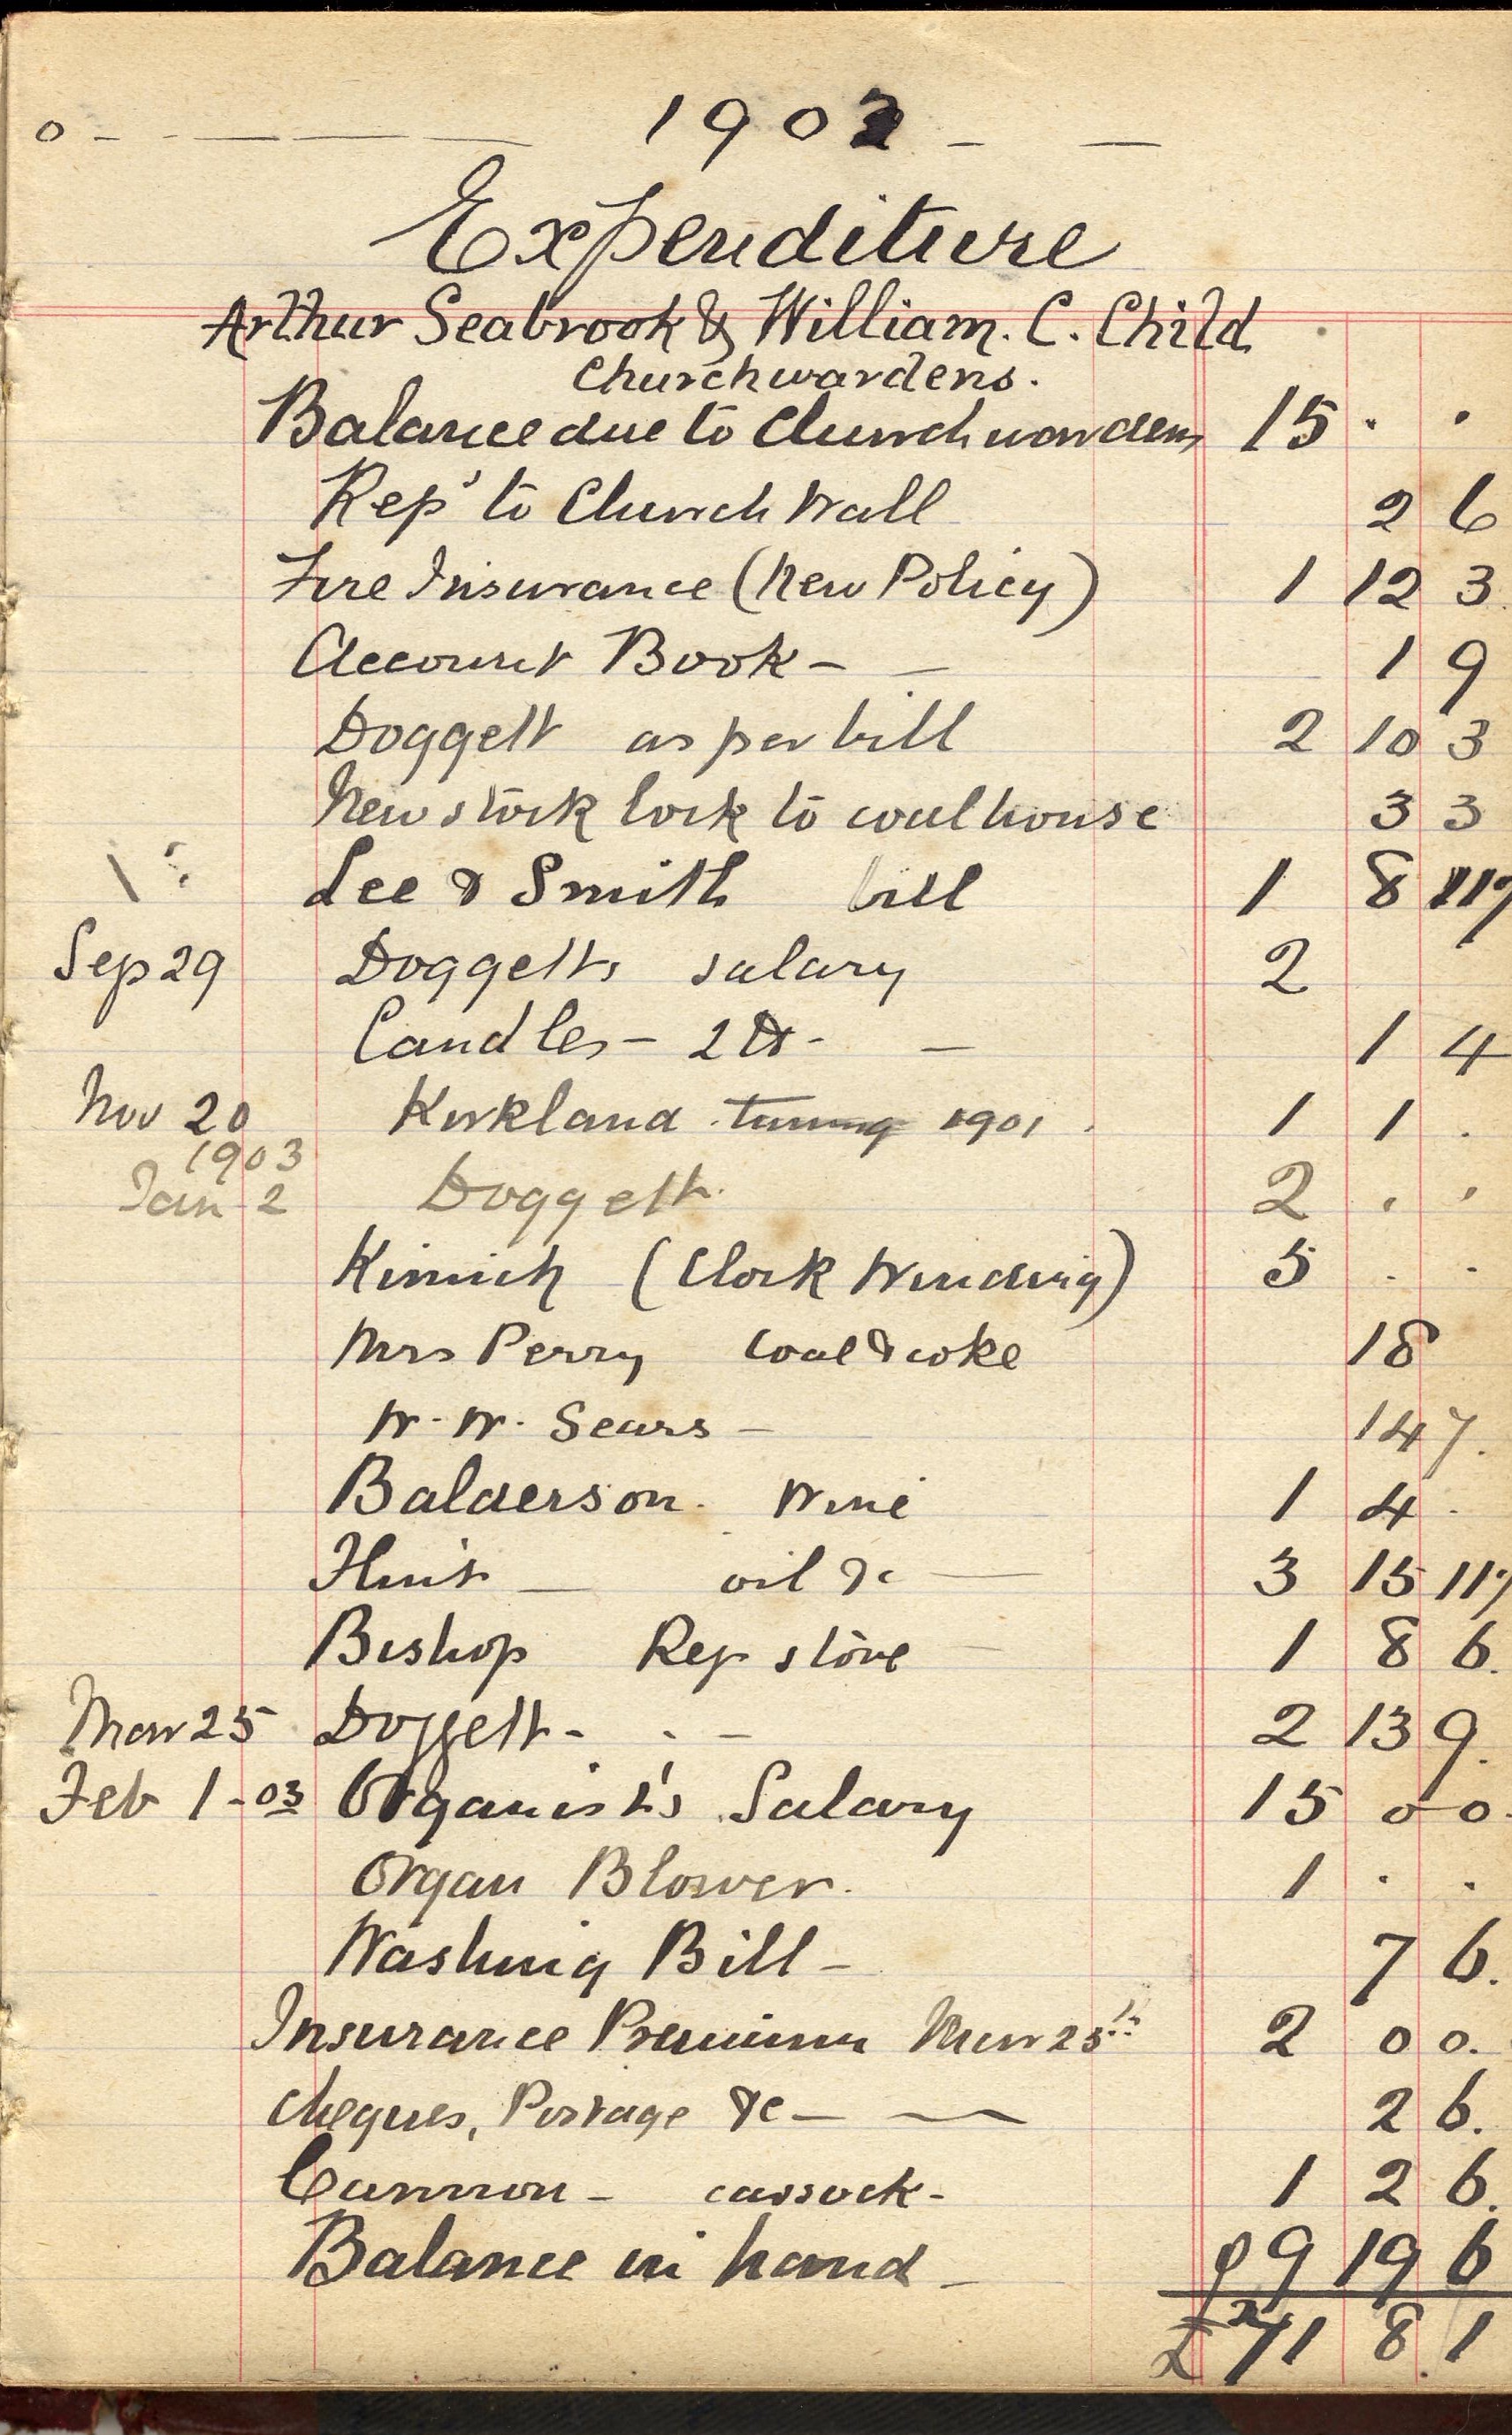 1902
Expenditure
Arthur Seabrook & William. C. Child
Churchwardens.
Balance due to Churchwardens 15 . .
Rep^s to Church Wall 2 6
Fire Insurance (New Policy) 1 12 3
Account Book - - 1 9
Doggett as per bill 2 10 3
New stock lock to coalhouse 3 3
Lee & Smith bill 1 8 11½
Sep 29 Doggetts salary 2
Candles - 2 lb - - 1 4
Nov 20 Kirkland tuning 1901 1 1 .
1903
Jan 2 Doggett. 2 . .
Kimich (Clock Winding) 5 . .
Mrs Perry Coal & coke 18
W. W. Sears - 14 7.
Balderson. Wine 1 4 .
Flint - oil &c - 3 15 11½
Bishop Rep stove - 1 8 6.
Mar 25 Doggett - - - 2 13 9.
Feb 1 - 03 Organist's Salary 15 0 0.
Organ Blower. 1 . .
Washing Bill - 7 6.
Insurance Premium Mar 25th 2 0 0.
Cheques, Postage &c - - 2 6.
Cannon - cassock - 1 2 6.
Balance in hand - 9 19 6
£71 8. 1